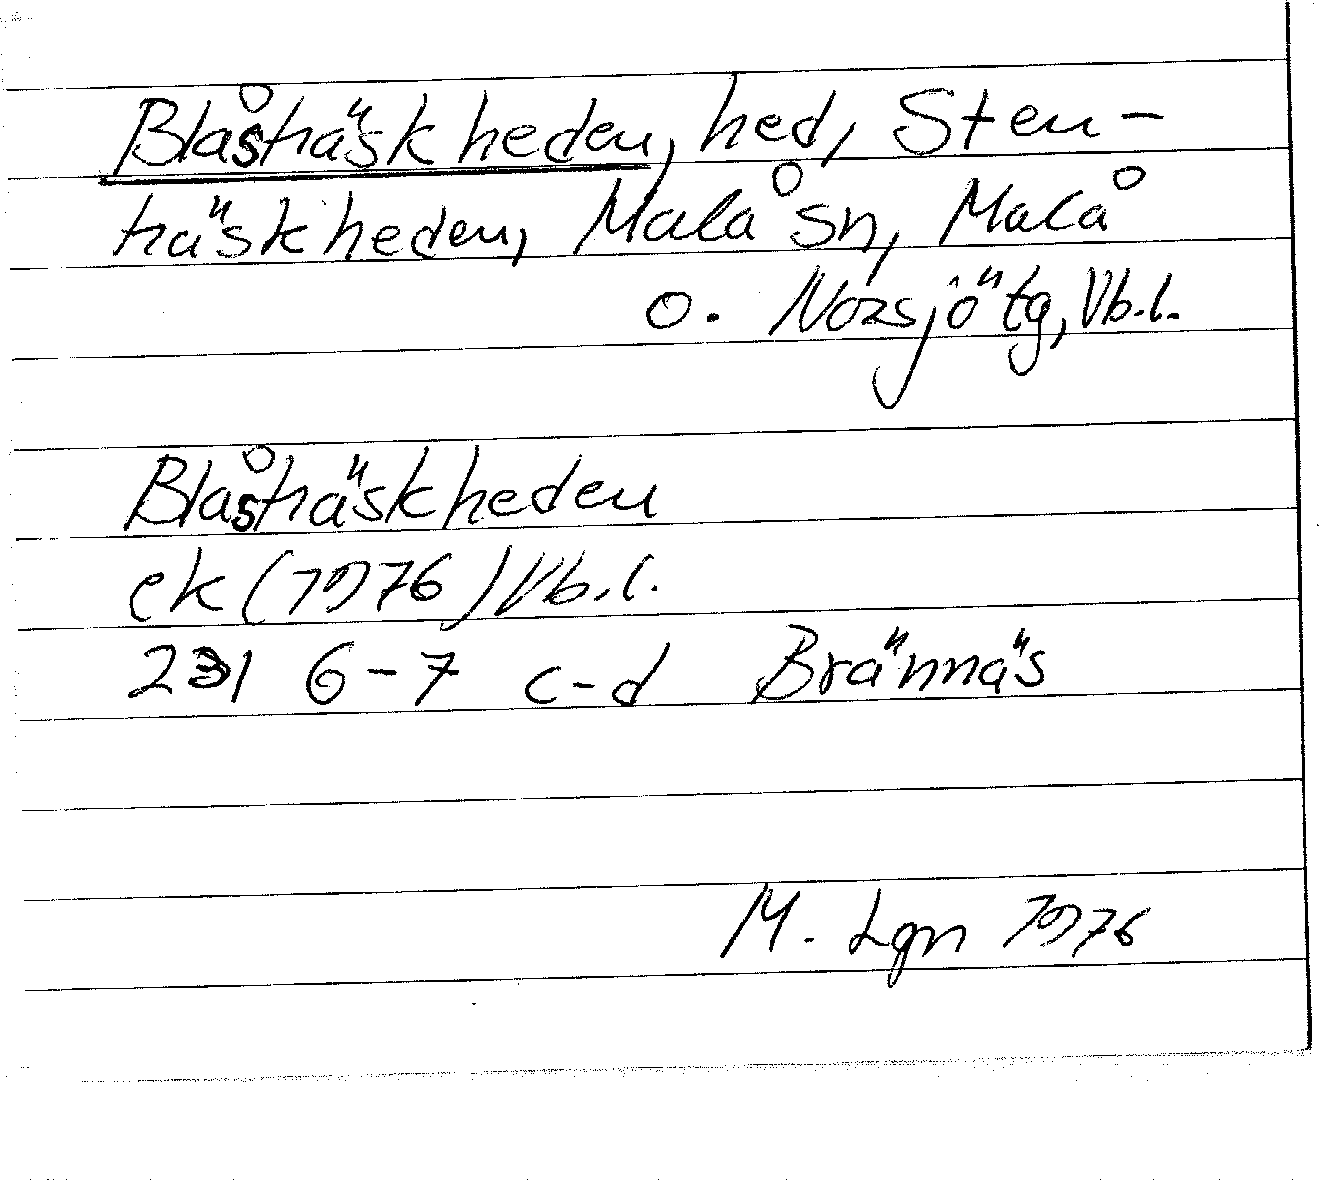 Blåsträskheden, hed, Sten-
träskheden, Malå sn, Malå
o. Norsjö tg, Vb.l.
Blåsträskheden
ek (1976) Vb.l.
231 6-7 c-d Brännäs
M. Lgn 1976